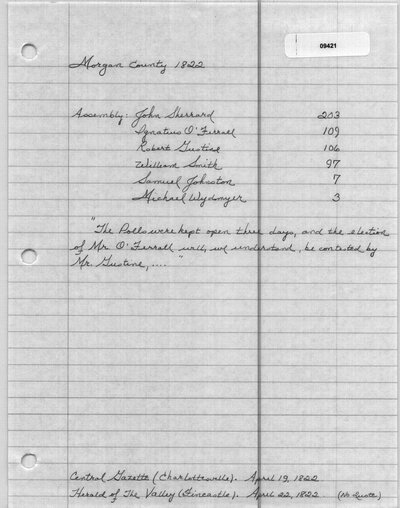 09421
Morgan County 1822
Assembly: John Sherrard 203
Ignatius O'Ferrall 109
Robert Gustine 106
William Smith 97
Samuel Johnston 7
Michael Wydmyer 3
"The Polls were kept open three days, and the election
of Mr. O'Ferrall will, we understand, be contested by
Mr. Gustine, .... "
Central Gazette (Charlottesville). April 19, 1822.
Herald of The Valley (Fincastle). April 22, 1822. (No Quote)